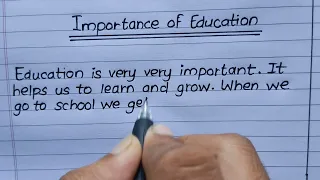 Importance of Education
Education is very very important. It
helps us to learn and grow. When we
go to school we ge